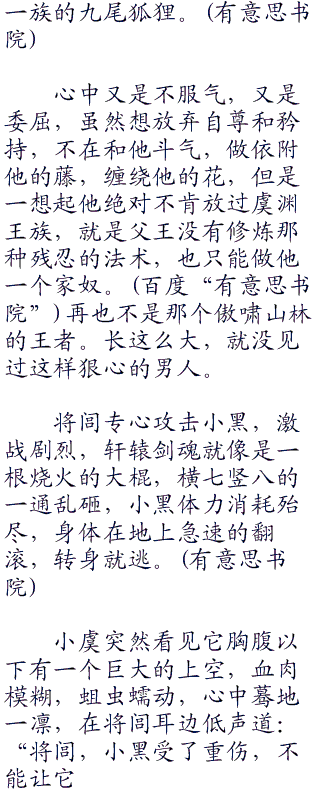 一族的九尾狐狸。(有意思书
院)
心中又是不服气，又是
委屈，虽然想放弃自尊和矜
持，不在和他斗气，做依附
他的藤，缠绕他的花，但是
一想起他绝对不肯放过虞渊
王族，就是父王没有修炼那
种残忍的法术，也只能做他
一个家奴。(百度“有意思书
院”)再也不是那个傲啸山林
的王者。长这么大，就没见
过这样狠心的男人。
将闾专心攻击小黑，激
战剧烈，轩辕剑魂就像是一
根烧火的大棍，横七竖八的
一通乱砸，小黑体力消耗殆
尽，身体在地上急速的翻
滚，转身就逃。(有意思书
院)
小虞突然看见它胸腹以
下有一个巨大的上空，血肉
模糊，蛆虫蠕动，心中蓦地
一凛，在将闾耳边低声道：
“将闾，小黑受了重伤，不
能让它